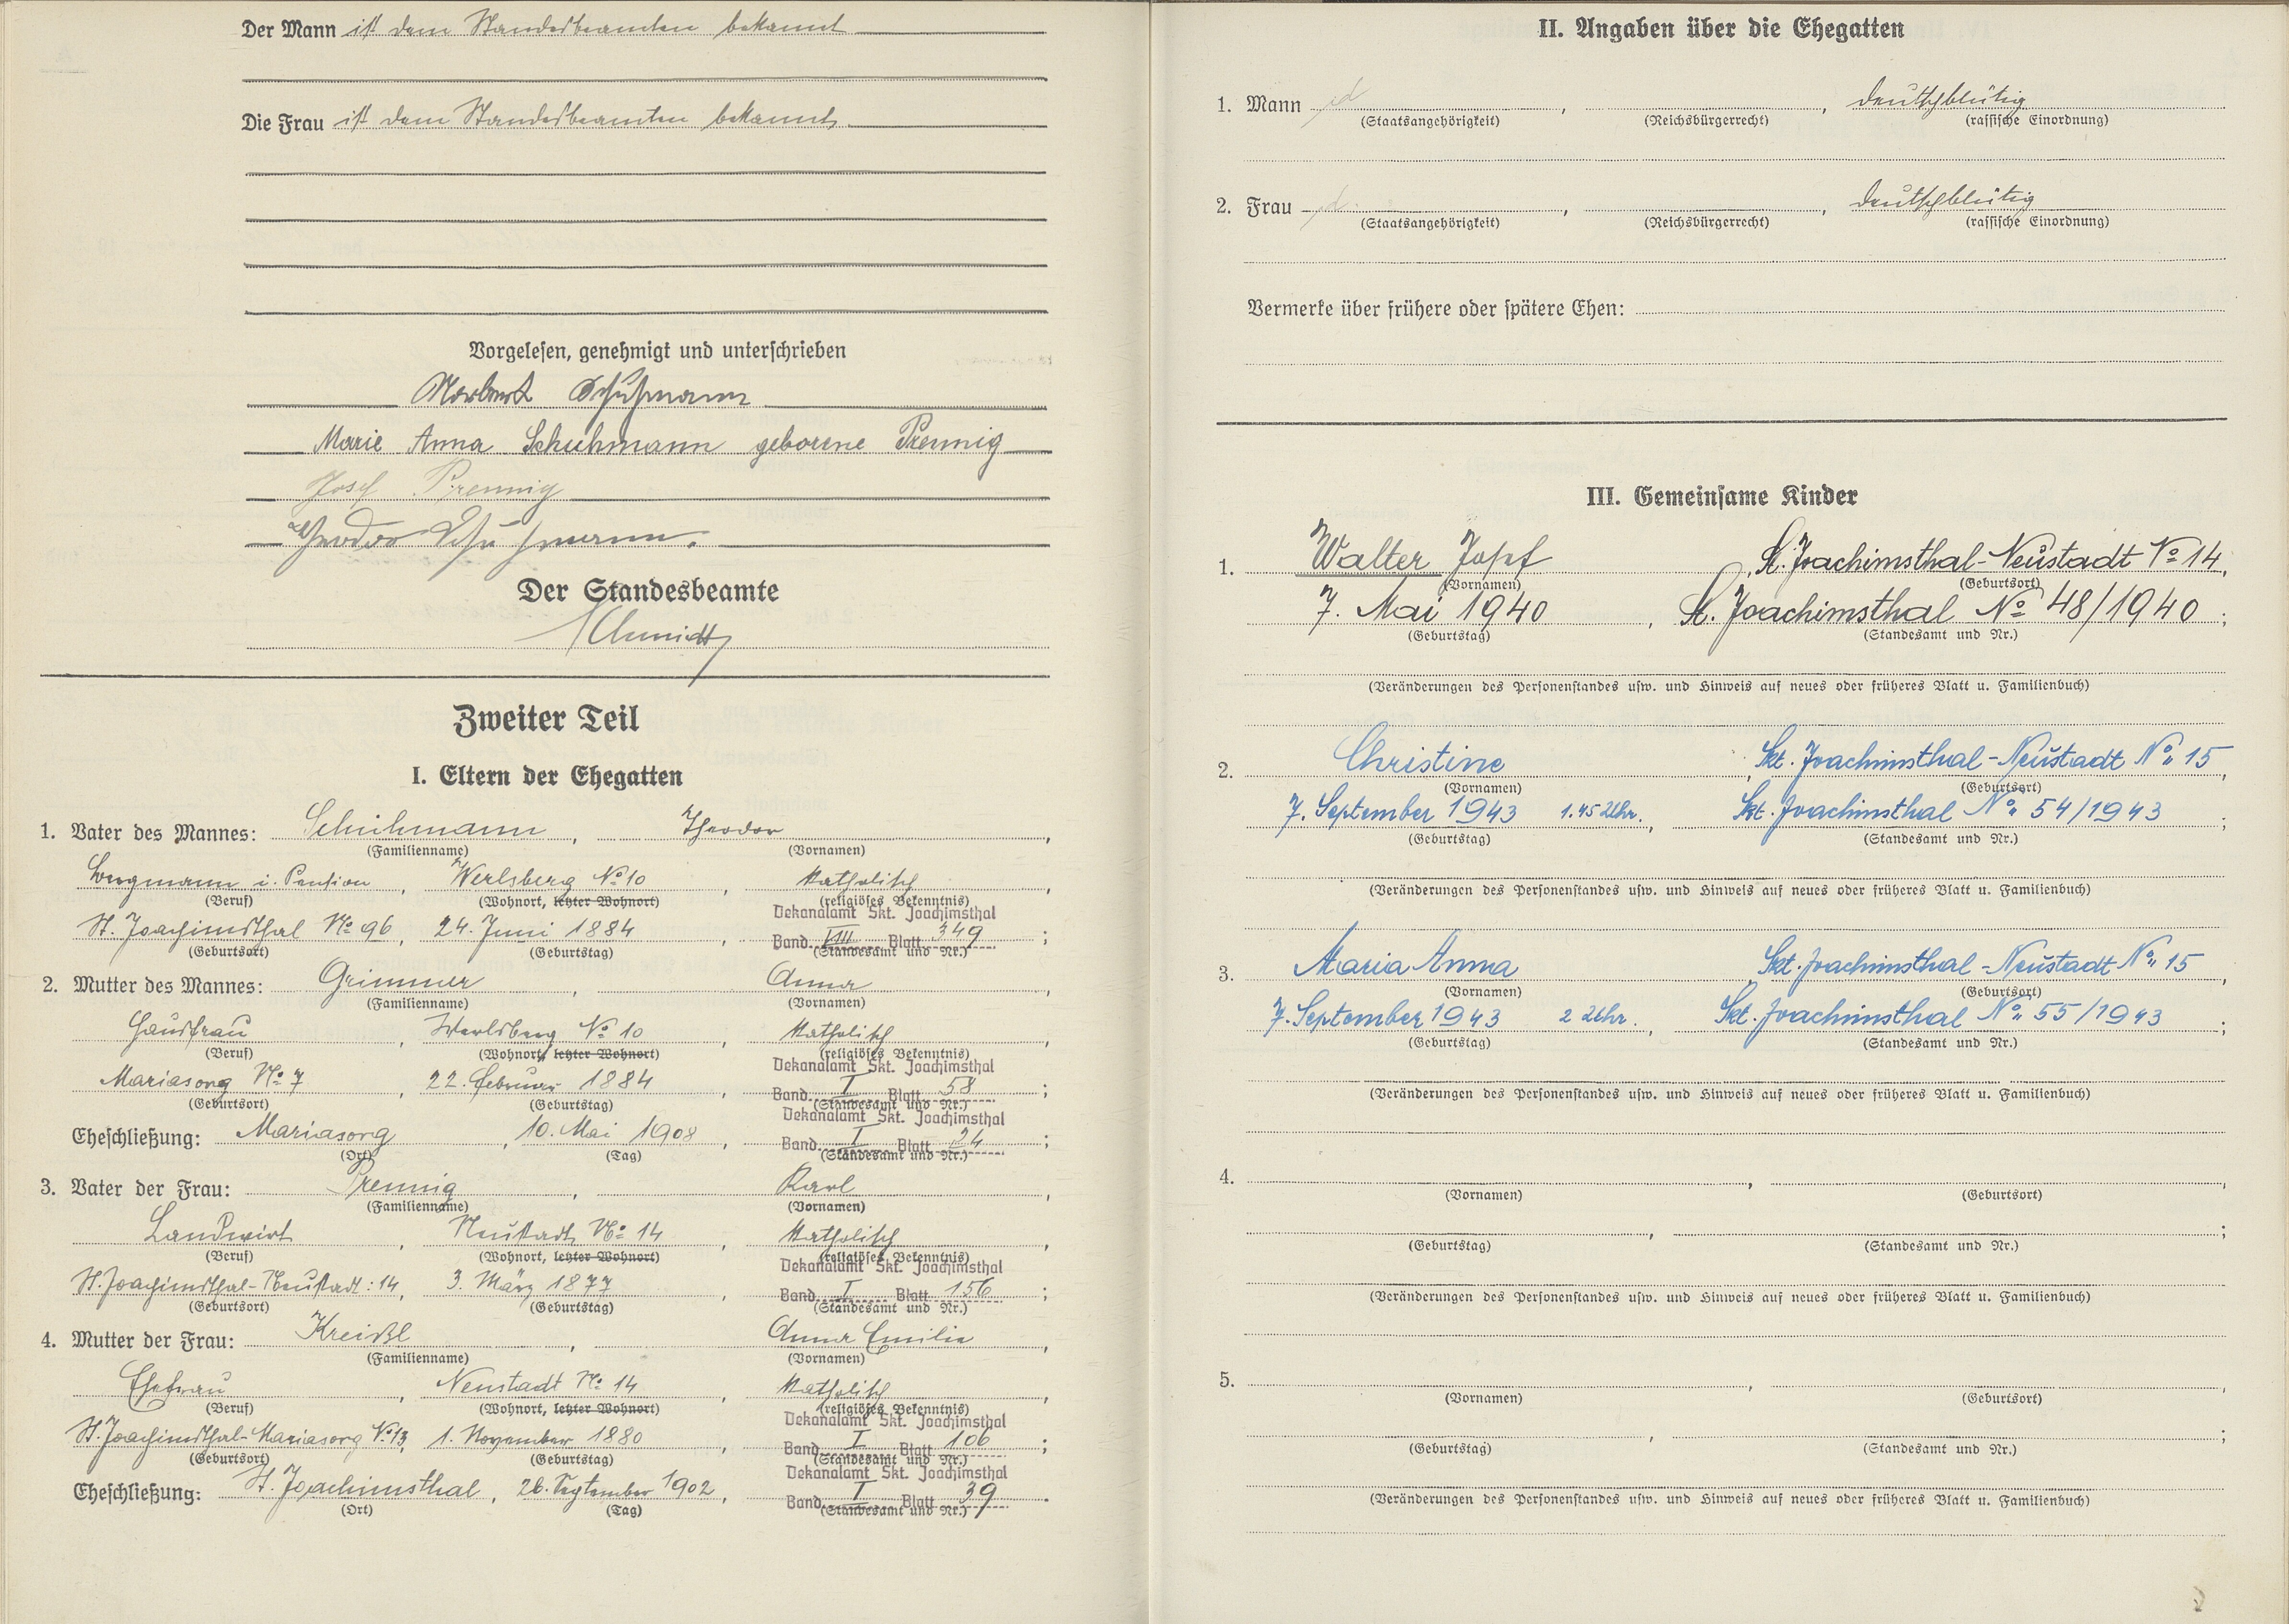 Der Mann ist dem Standesbeamten bekannt
Die Frau ist dem Standesbeamten bekannt.
Vorgelesen, genehmigt und unterschrieben
Norbert Schuhmann
Marie Anna Schuhmann geborene Prennig
Josef Prennig
Theodor Schuhmann.
Der Standesbeamte
Schmidt
Zweiter Teil
I. Eltern der Ehegatten
1. Vater des Mannes: Schuhmann, Theodor,
(Familienname) (Vornamen)
Bergmann i. Pension, Werlsberg No 10, katholisch,
(Beruf) (Wohnort, letzter Wohnort) (religiöses Bekenntnis)
Dekanalamt Skt. Joachimsthal
St. Joachimsthal No 96, 24. Juni 1884, Band VIII Blatt 349;
(Geburtsort) (Geburtstag) (Standesamt und Nr.)
2. Mutter des Mannes: Grimmer, Anna,
(Familienname) (Vornamen)
Hausfrau, Werlsberg No 10, katholisch,
(Beruf) (Wohnort, letzter Wohnort) (religiöses Bekenntnis)
Dekanalamt Skt. Joachimsthal
Mariasorg No 7, 22. Februar 1884, Band I Blatt 58;
(Geburtsort) (Geburtstag) (Standesamt und Nr.)
Dekanalamt Skt. Joachimsthal
Eheschließung: Mariasorg, 10. Mai 1908, Band I Blatt 24;
(Ort) (Tag) (Standesamt und Nr.)
3. Vater der Frau: Prennig, Karl,
(Familienname) (Vornamen)
Landwirt, Neustadt No 14, katholisch,
(Beruf) (Wohnort, letzter Wohnort) (religiöses Bekenntnis)
Dekanalamt Skt. Joachimsthal
St. Joachimsthal-Neustadt: 14, 3. März 1877, Band I Blatt 156;
(Geburtsort) (Geburtstag) (Standesamt und Nr.)
4. Mutter der Frau: Kreißl, Anna Emilie,
(Familienname) (Vornamen)
Ehefrau, Neustadt No 14, katholisch,
(Beruf) (Wohnort, letzter Wohnort) (religiöses Bekenntnis)
Dekanalamt Skt. Joachimsthal
St. Joachimsthal-Mariasorg No 13, 1. November 1880, Band I Blatt 106;
(Geburtsort) (Geburtstag) (Standesamt und Nr.)
Dekanalamt Skt. Joachimsthal
Eheschließung: St. Joachimsthal, 26. September 1902, Band I Blatt 39.
(Ort) (Tag) (Standesamt und Nr.)
II. Angaben über die Ehegatten
1. Mann , , deutschblütig
(Staatsangehörigkeit) (Reichsbürgerrecht) (rassische Einordnung)
2. Frau , , deutschblütig
(Staatsangehörigkeit) (Reichsbürgerrecht) (rassische Einordnung)
Vermerke über frühere oder spätere Ehen:
III. Gemeinsame Kinder
1. Walter Josef, St. Joachimsthal-Neustadt No 14,
(Vornamen) (Geburtsort)
7. Mai 1940, St. Joachimsthal No 48/1940;
(Geburtstag) (Standesamt und Nr.)
(Veränderungen des Personenstandes usw. und Hinweis auf neues oder früheres Blatt u. Familienbuch)
2. Christine, Skt. Joachimsthal-Neustadt No 15,
(Vornamen) (Geburtsort)
7. September 1943 1.45 Uhr., Skt. Joachimsthal No 54/1943;
(Geburtstag) (Standesamt und Nr.)
(Veränderungen des Personenstandes usw. und Hinweis auf neues oder früheres Blatt u. Familienbuch)
3. Maria Anna Skt. Joachimsthal-Neustadt No 15,
(Vornamen) (Geburtsort)
7. September 1943 2 Uhr., Skt. Joachimsthal No 55/1943;
(Geburtstag) (Standesamt und Nr.)
(Veränderungen des Personenstandes usw. und Hinweis auf neues oder früheres Blatt u. Familienbuch)
4. , ,
(Vornamen) (Geburtsort)
, ;
(Geburtstag) (Standesamt und Nr.)
(Veränderungen des Personenstandes usw. und Hinweis auf neues oder früheres Blatt u. Familienbuch)
5. , ,
(Vornamen) (Geburtsort)
, ;
(Geburtstag) (Standesamt und Nr.)
(Veränderungen des Personenstandes usw. und Hinweis auf neues oder früheres Blatt u. Familienbuch)